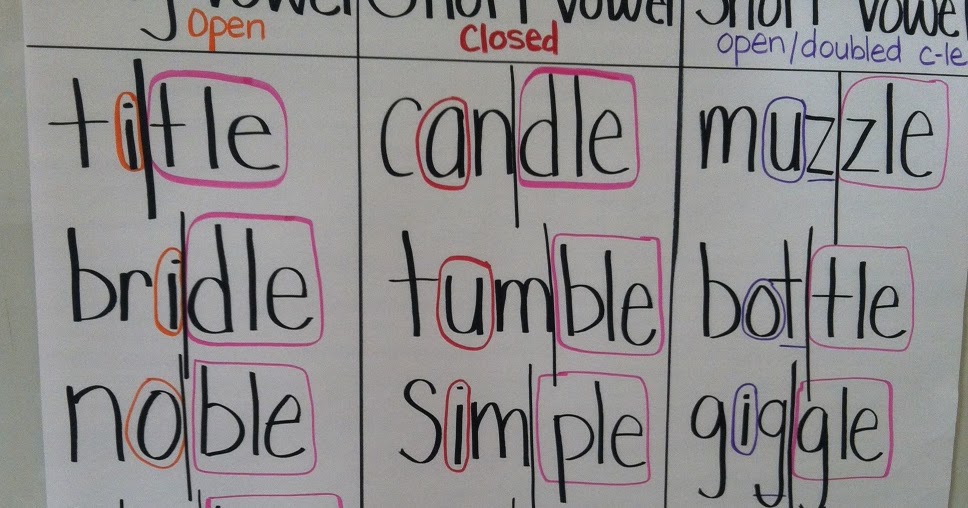 Vowel Short Vowel Short Vowel
Open Closed open/doubled c-le
title candle muzzle
bridle tumble bottle
noble simple giggle